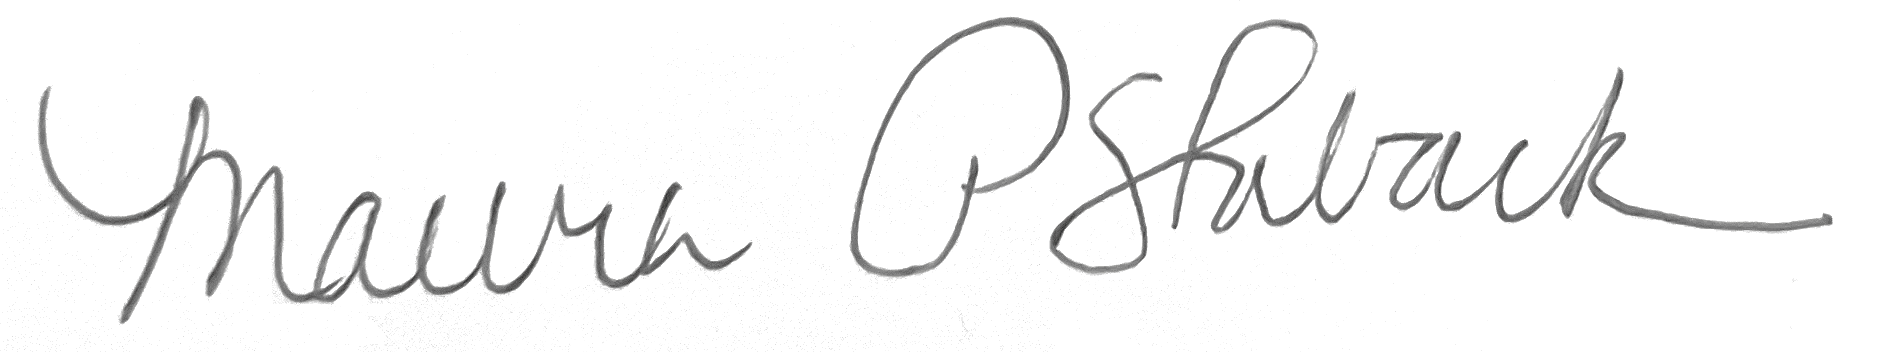 Maura P Shaback